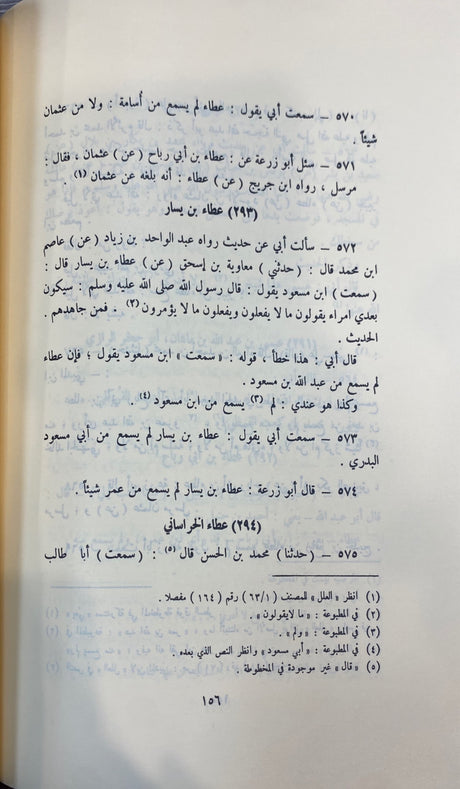 ٥٧٠ – سمعت أبي يقول : عطاء لم يسمع من أسامة : ولا من عثمان
شيئاً .
٥٧١ – سئل أبو زرعة عن : عطاء بن أبي رباح ( عن ) عثمان ، فقال :
مرسل ، رواه ابن جريج ( عن ) عطاء : أنه بلغه عن عثمان (١) .
(٢٩٣) عطاء بن يسار
٥٧٢ – سألت أبي عن حديث رواه عبد الواحد بن زياد ( عن ) عاصم
ابن محمد قال : ( حدثني ) معاوية بن إسحق ( عن ) عطاء بن يسار قال :
( سمعت ) ابن مسعود يقول : قال رسول الله صلى الله عليه وسلم : سيكون
بعدي امراء يقولون ما لا يفعلون ويفعلون ما لا يؤمرون (٢) . فمن جاهدهم .
الحديث .
قال أبي : هذا خطأ ، قوله : « سمعت » ابن مسعود يقول ؛ فإن عطاء
لم يسمع من عبد الله بن مسعود .
وكذا هو عندي : لم (٣) يسمع من ابن مسعود (٤) .
٥٧٣ – سمعت أبي يقول : عطاء بن يسار لم يسمع من أبي مسعود
البدري .
٥٧٤ – قال أبو زرعة : عطاء بن يسار لم يسمع من عمر شيئاً .
(٢٩٤) عطاء الخراساني
٥٧٥ – ( حدثنا ) محمد بن الحسن قال (٥) : ( سمعت ) أبا طالب
(١) انظر « العلل » للمصنف (٦٣/١) رقم (١٦٤) مفصلا .
(٢) في المطبوعة : « ما لايقولون » .
(٣) في المطبوعة : « ولم » .
(٤) في المطبوعة : « أبي مسعود » وانظر النص الذي بعده .
(٥) « قال » غير موجودة في المخطوطة .
١٥٦